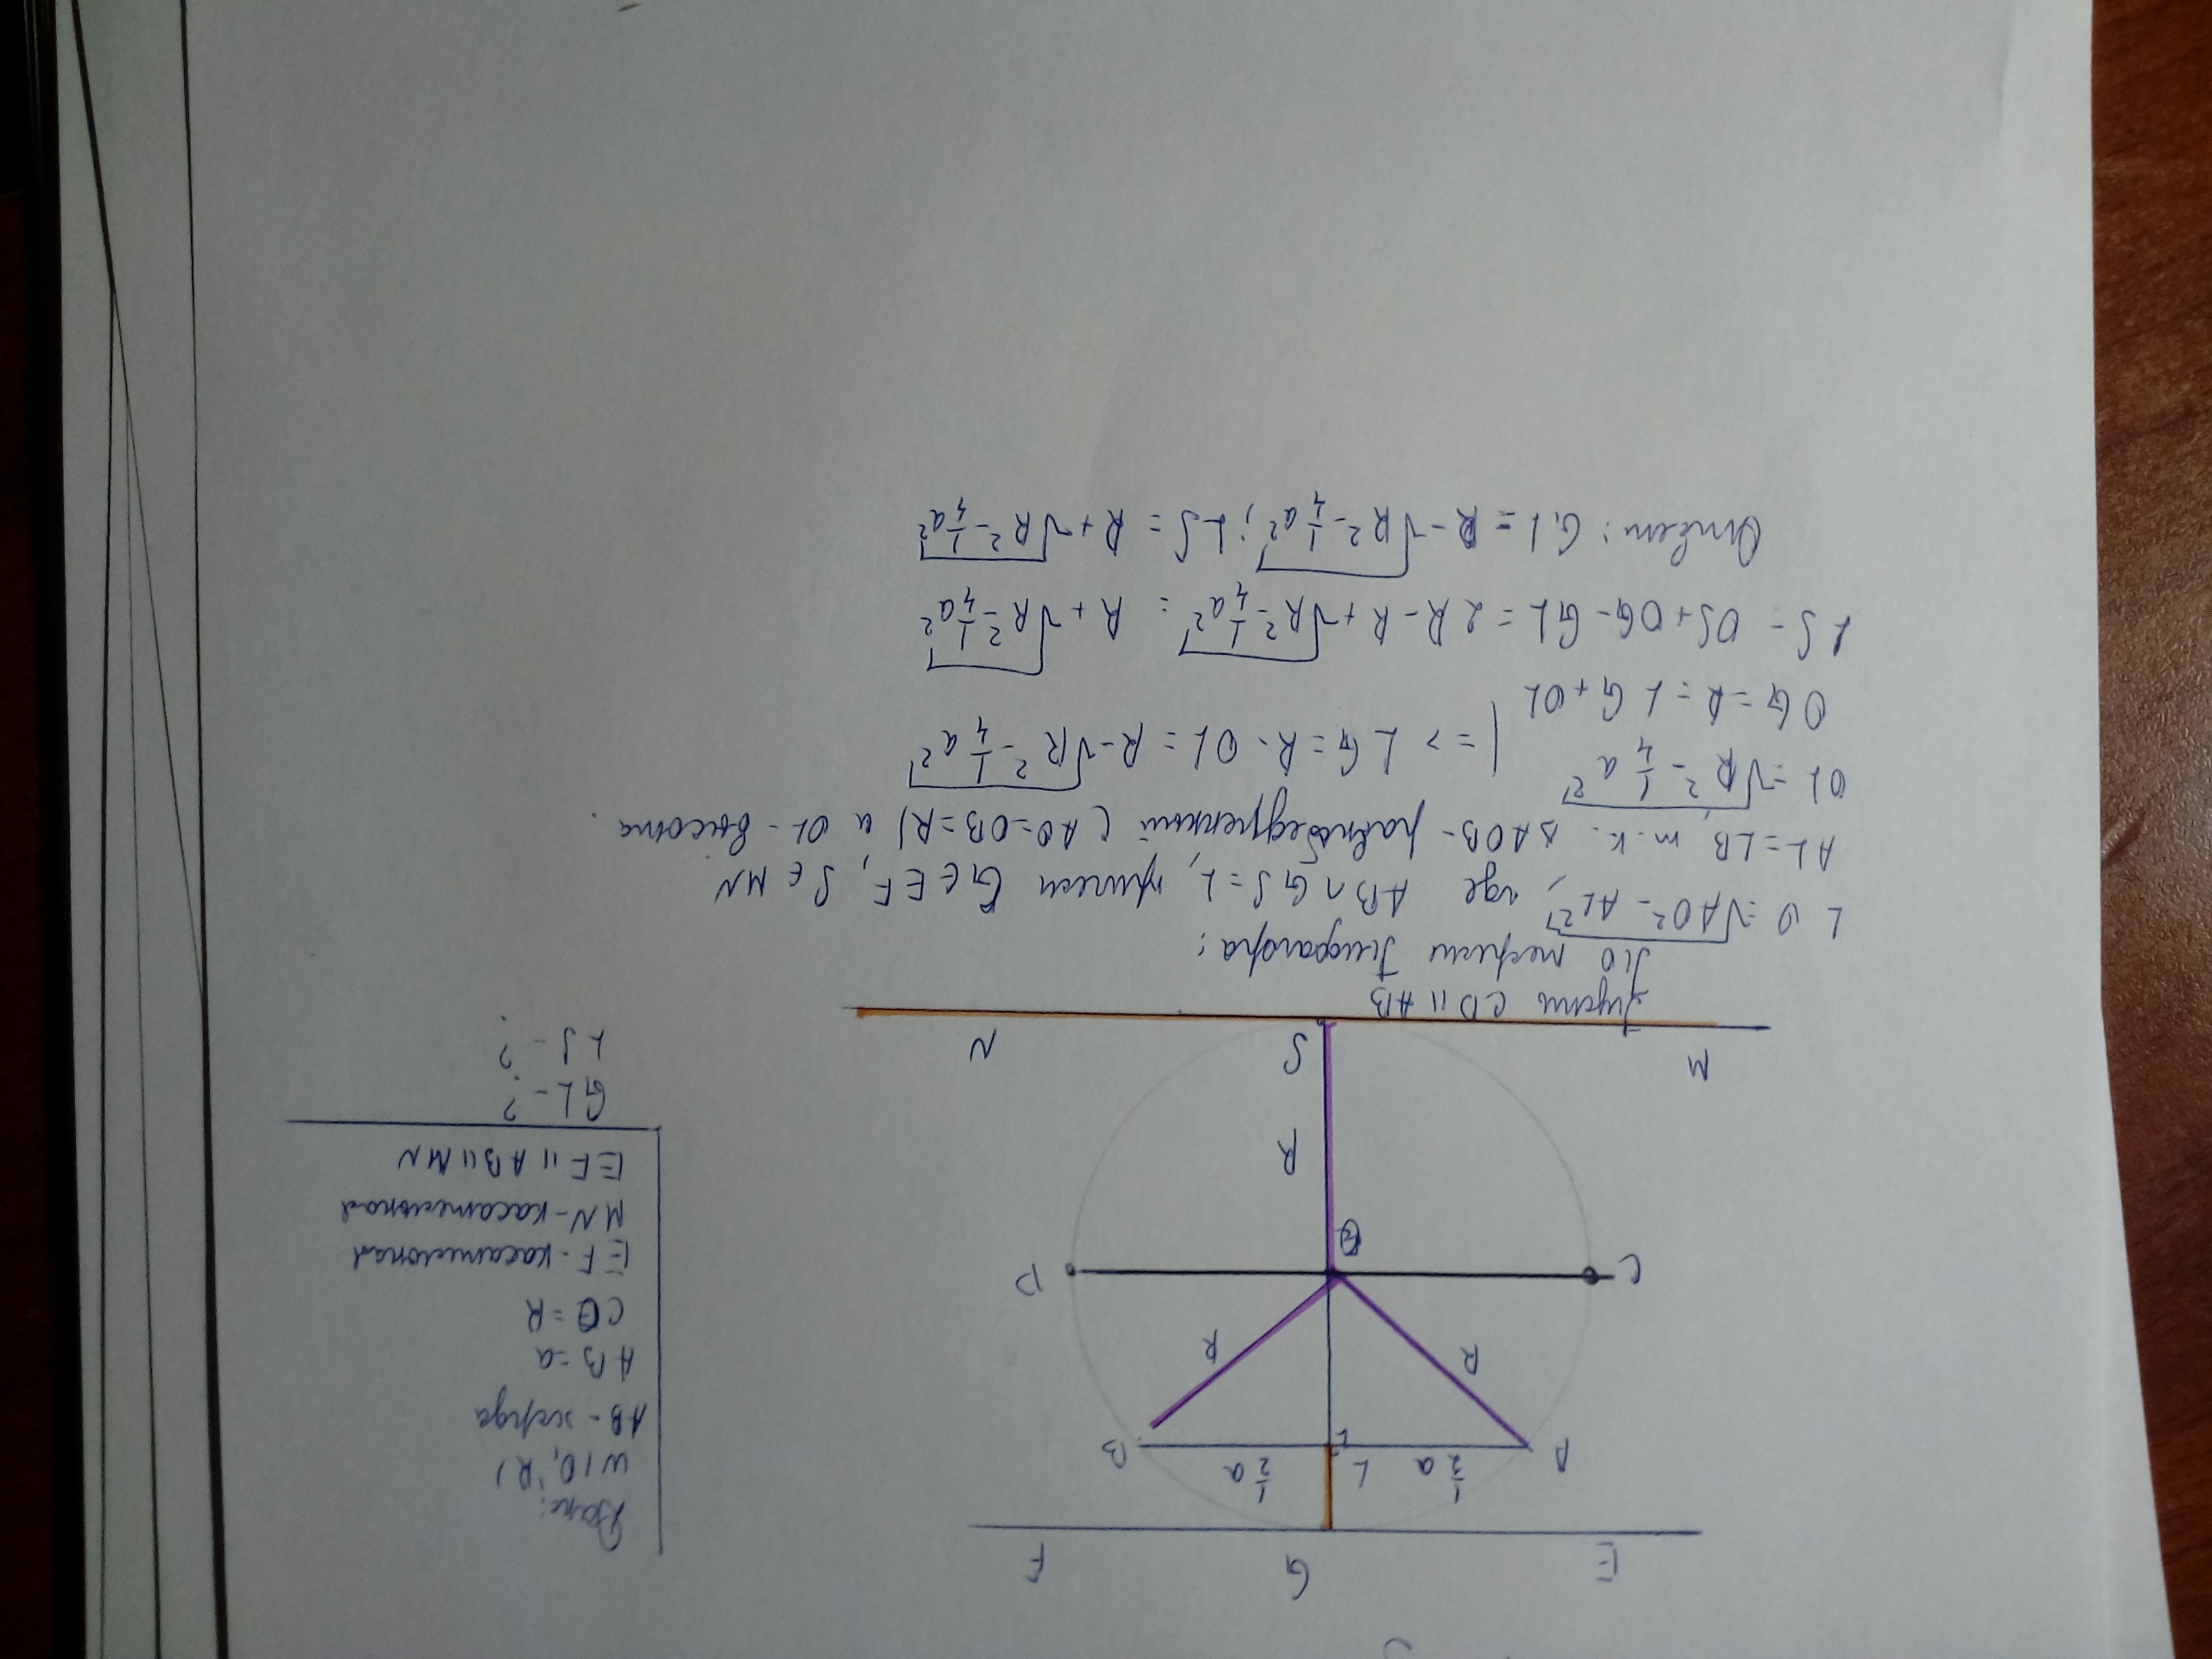 E G F
A ½ a L ½ a B
R R
C O D
R
M S N
Дано:
W(O, R)
AB - хорда
AB = a
CO = R
EF - касательная
MN - касательная
EF || AB || MN
GL - ?
LS - ?
Пусть CD || AB
По теореме Пифагора:
LO = √AO² - AL², где AB ∩ GS = L, причем G ∈ EF, S ∈ MN
AL = LB, т.к. △AOB - равнобедренный (AO = OB = R) и OL - высота.
OL = √R² - ¼ a²
OG = R = LG + OL | => LG = R - OL = R - √R² - ¼ a²
LS = OS + OG - GL = 2R - R + √R² - ¼ a² = R + √R² - ¼ a²
Ответ: GL = R - √R² - ¼ a²; LS = R + √R² - ¼ a²